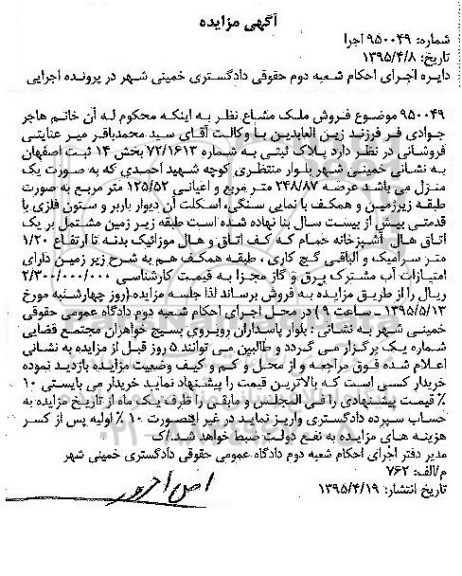 آگهی مزایده
شماره: ۹۵۰۰۴۹ اجرا
تاریخ: ۱۳۹۵/۴/۸
دایره اجرای احکام شعبه دوم حقوقی دادگستری خمینی شهر در پرونده اجرایی
۹۵۰۰۴۹ موضوع فروش ملک مشاع نظر به اینکه محکوم له آن خانم هاجر
جوادی فر فرزند زین العابدین با وکالت آقای سید محمدباقر میر عنایتی
فروشانی در نظر دارد پلاک ثبتی به شماره ۷۲/۱۶۱۳ بخش ۱۴ ثبت اصفهان
به نشانی خمینی شهر بلوار منتظری کوچه شهید احمدی که به صورت یک
منزل می باشد عرصه ۲۴۸/۸۷ متر مربع و اعیانی ۱۲۵/۵۲ متر مربع به صورت
طبقه زیرزمین و همکف با نمایی سنگی، اسکلت آن دیوار باربر و ستون فلزی با
قدمتی بیش از بیست سال بنا نهاده شده است طبقه زیر زمین مشتمل بر یک
اتاق هال، آشپزخانه حمام که کف اتاق و هال موزائیک بدنه تا ارتفاع ۱/۲۰
متر سرامیک و الباقی گچ کاری، طبقه همکف هم به شرح زیر زمین دارای
امتیازات آب مشترک برق و گاز مجزا به قیمت کارشناسی ۲/۳۰۰/۰۰۰/۰۰۰
ریال را از طریق مزایده به فروش برساند لذا جلسه مزایده (روز چهارشنبه مورخ
۱۳۹۵/۵/۱۳ - ساعت ۹) در محل اجرای احکام شعبه دوم دادگاه عمومی حقوقی
خمینی شهر به نشانی: بلوار پاسداران روبروی بسیج خواهران مجتمع قضایی
شماره یک برگزار می گردد و طالبین می توانند ۵ روز قبل از مزایده به نشانی
اعلام شده فوق مراجعه و از محل و کم و کیف وضعیت مزایده بازدید نموده
خریدار کسی است که بالاترین قیمت را پیشنهاد نماید خریدار می بایستی ۱۰
٪ قیمت پیشنهادی را فی المجلس و مابقی را ظرف یک ماه از تاریخ مزایده به
حساب سپرده دادگستری واریز نماید در غیر اینصورت ۱۰ ٪ اولیه پس از کسر
هزینه های مزایده به نفع دولت ضبط خواهد شد./ک
مدیر دفتر اجرای احکام شعبه دوم دادگاه عمومی حقوقی دادگستری خمینی شهر
م/الف: ۷۶۲
تاریخ انتشار: ۱۳۹۵/۴/۱۹